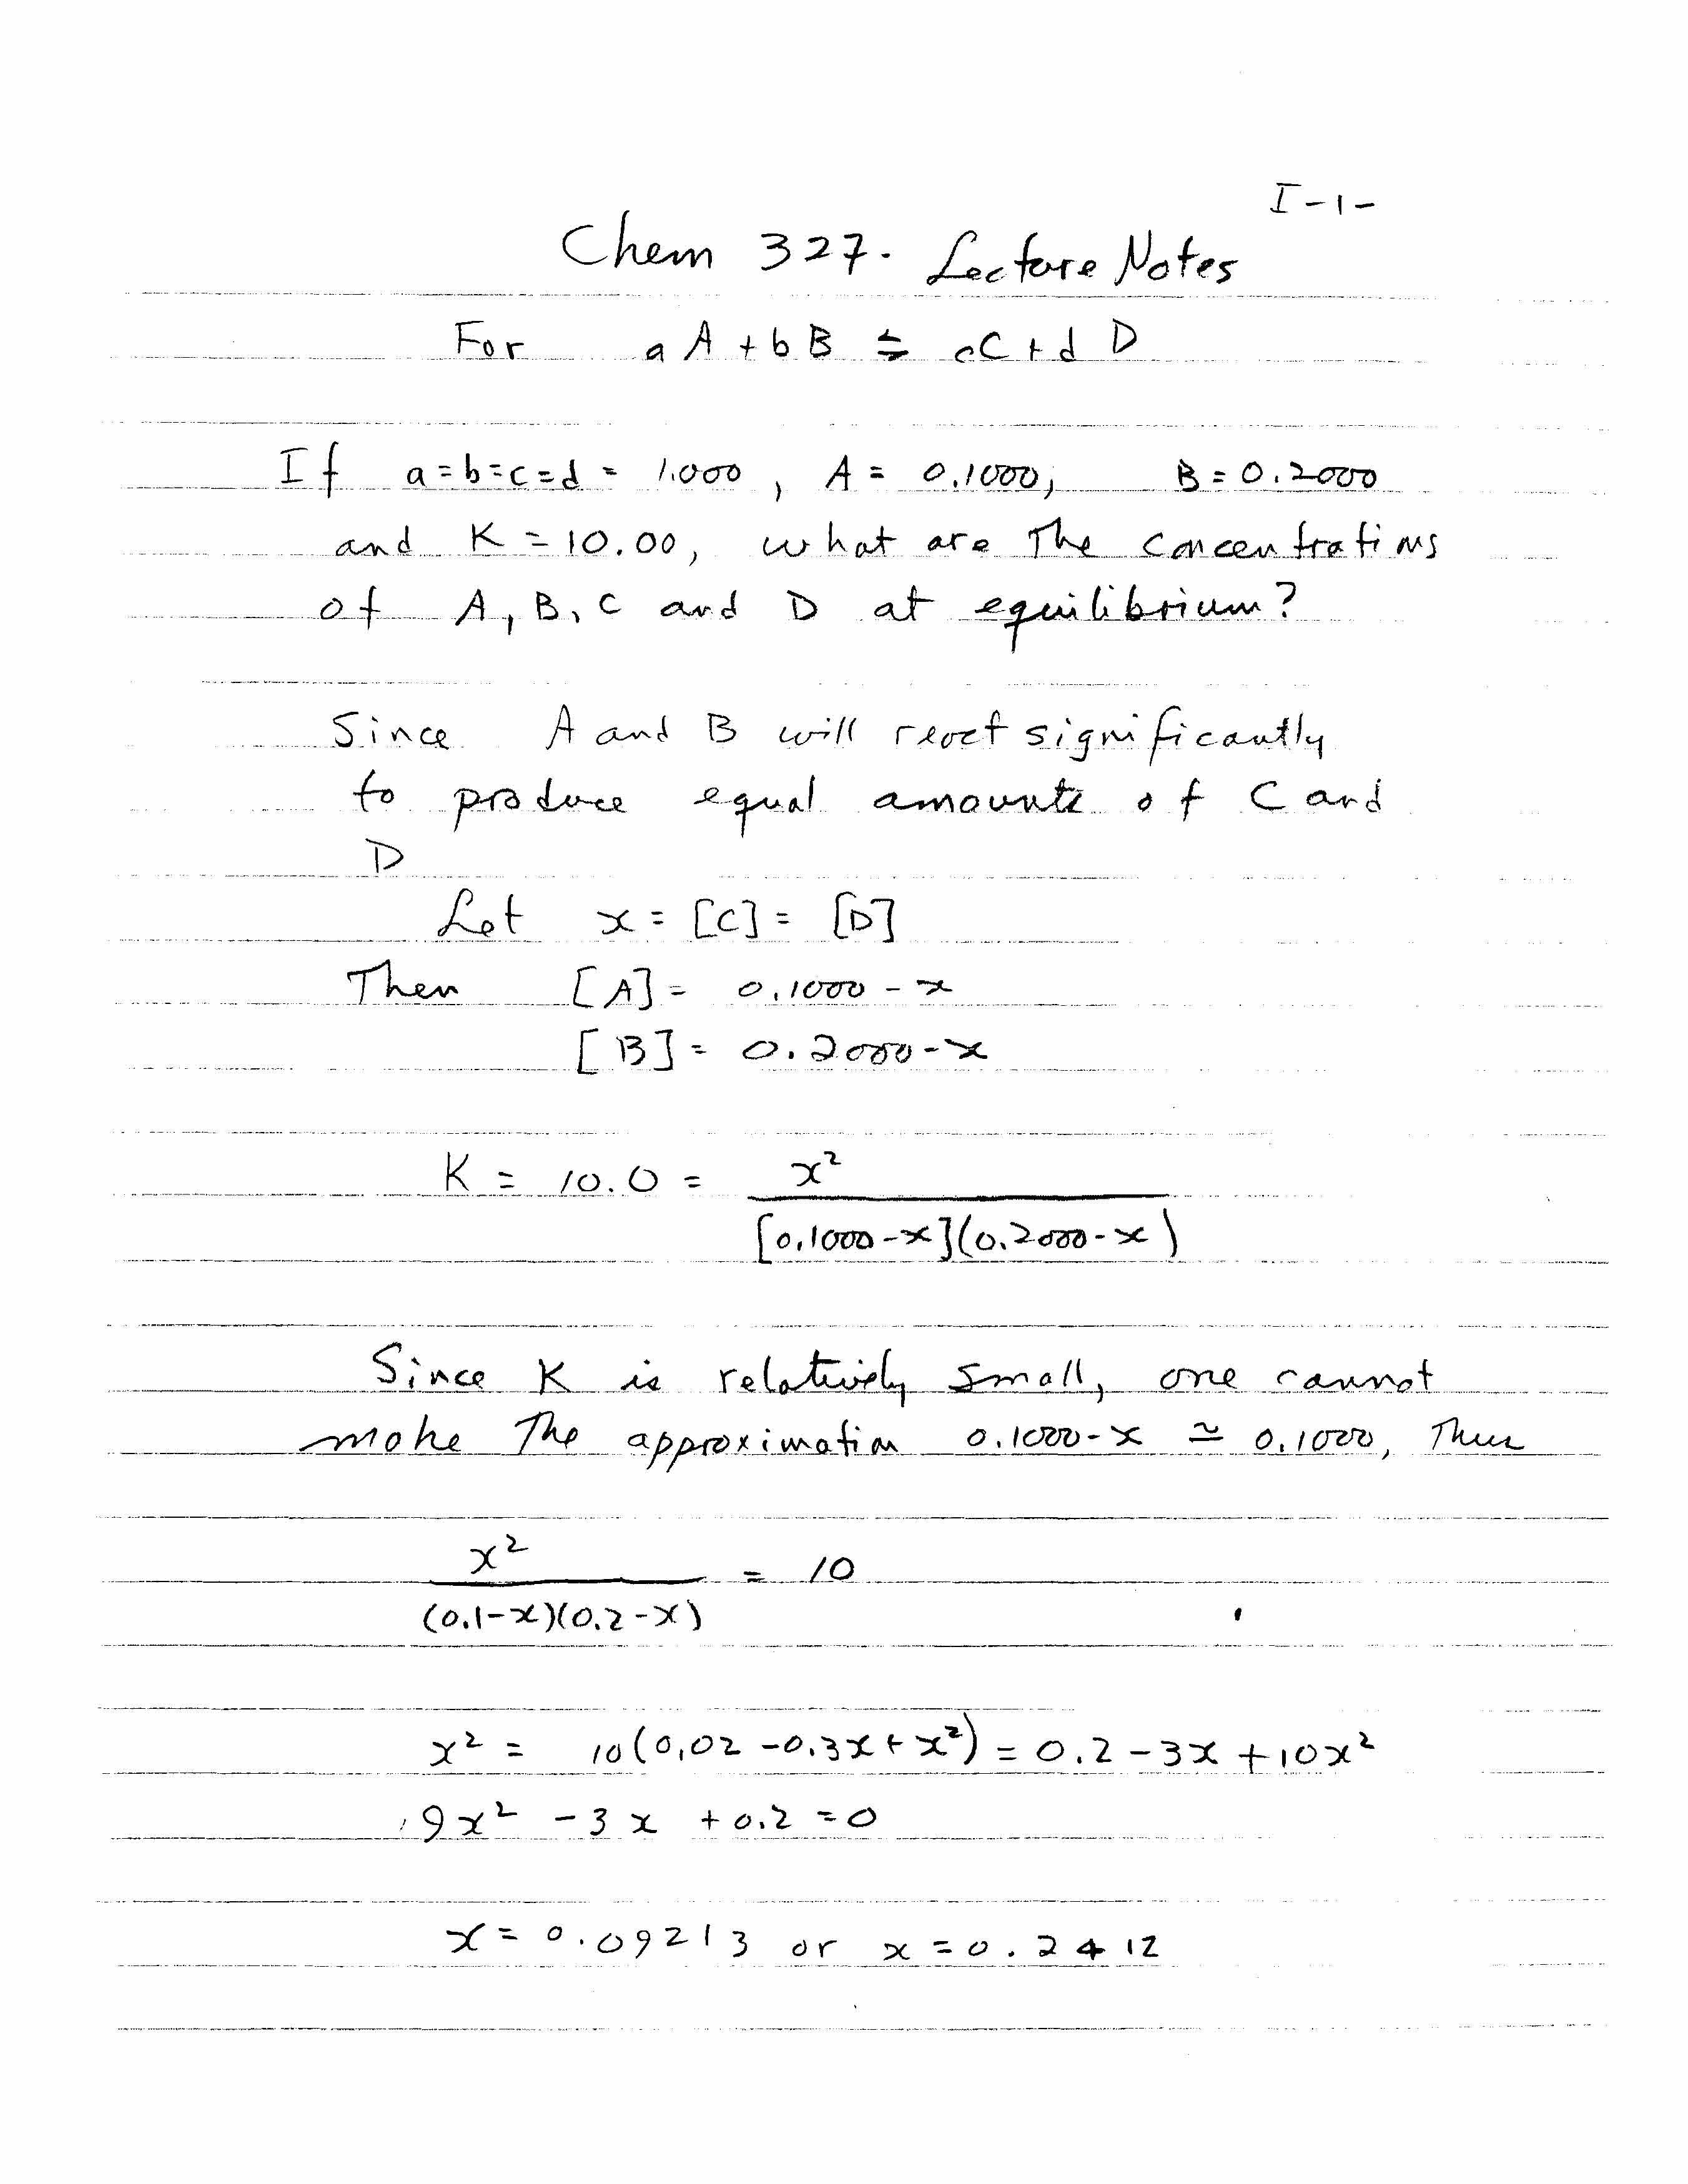 I-1-
Chem 327. Lecture Notes
For aA + bB ⇌ cC + dD
If a=b=c=d = 1.000, A = 0.1000, B = 0.2000
and K = 10.00, what are the concentrations
of A, B, C and D at equilibrium?
Since A and B will react significantly
to produce equal amounts of C and
D
Let x = [C] = [D]
Then [A] = 0.1000 - x
[B] = 0.2000 - x
K = 10.0 = x²
[0.1000-x](0.2000-x)
Since K is relatively small, one cannot
make the approximation 0.1000-x ≃ 0.1000, Thus
x² = 10
(0.1-x)(0.2-x)
x² = 10(0.02 -0.3x + x²) = 0.2 - 3x + 10x²
9x² - 3x + 0.2 = 0
x = 0.09213 or x = 0.2412